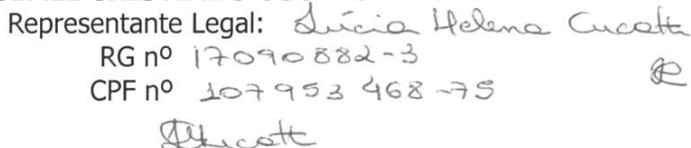 Representante Legal: Lúcia Helena Cucatti
RG nº 17090882-3
CPF nº 107953468-75